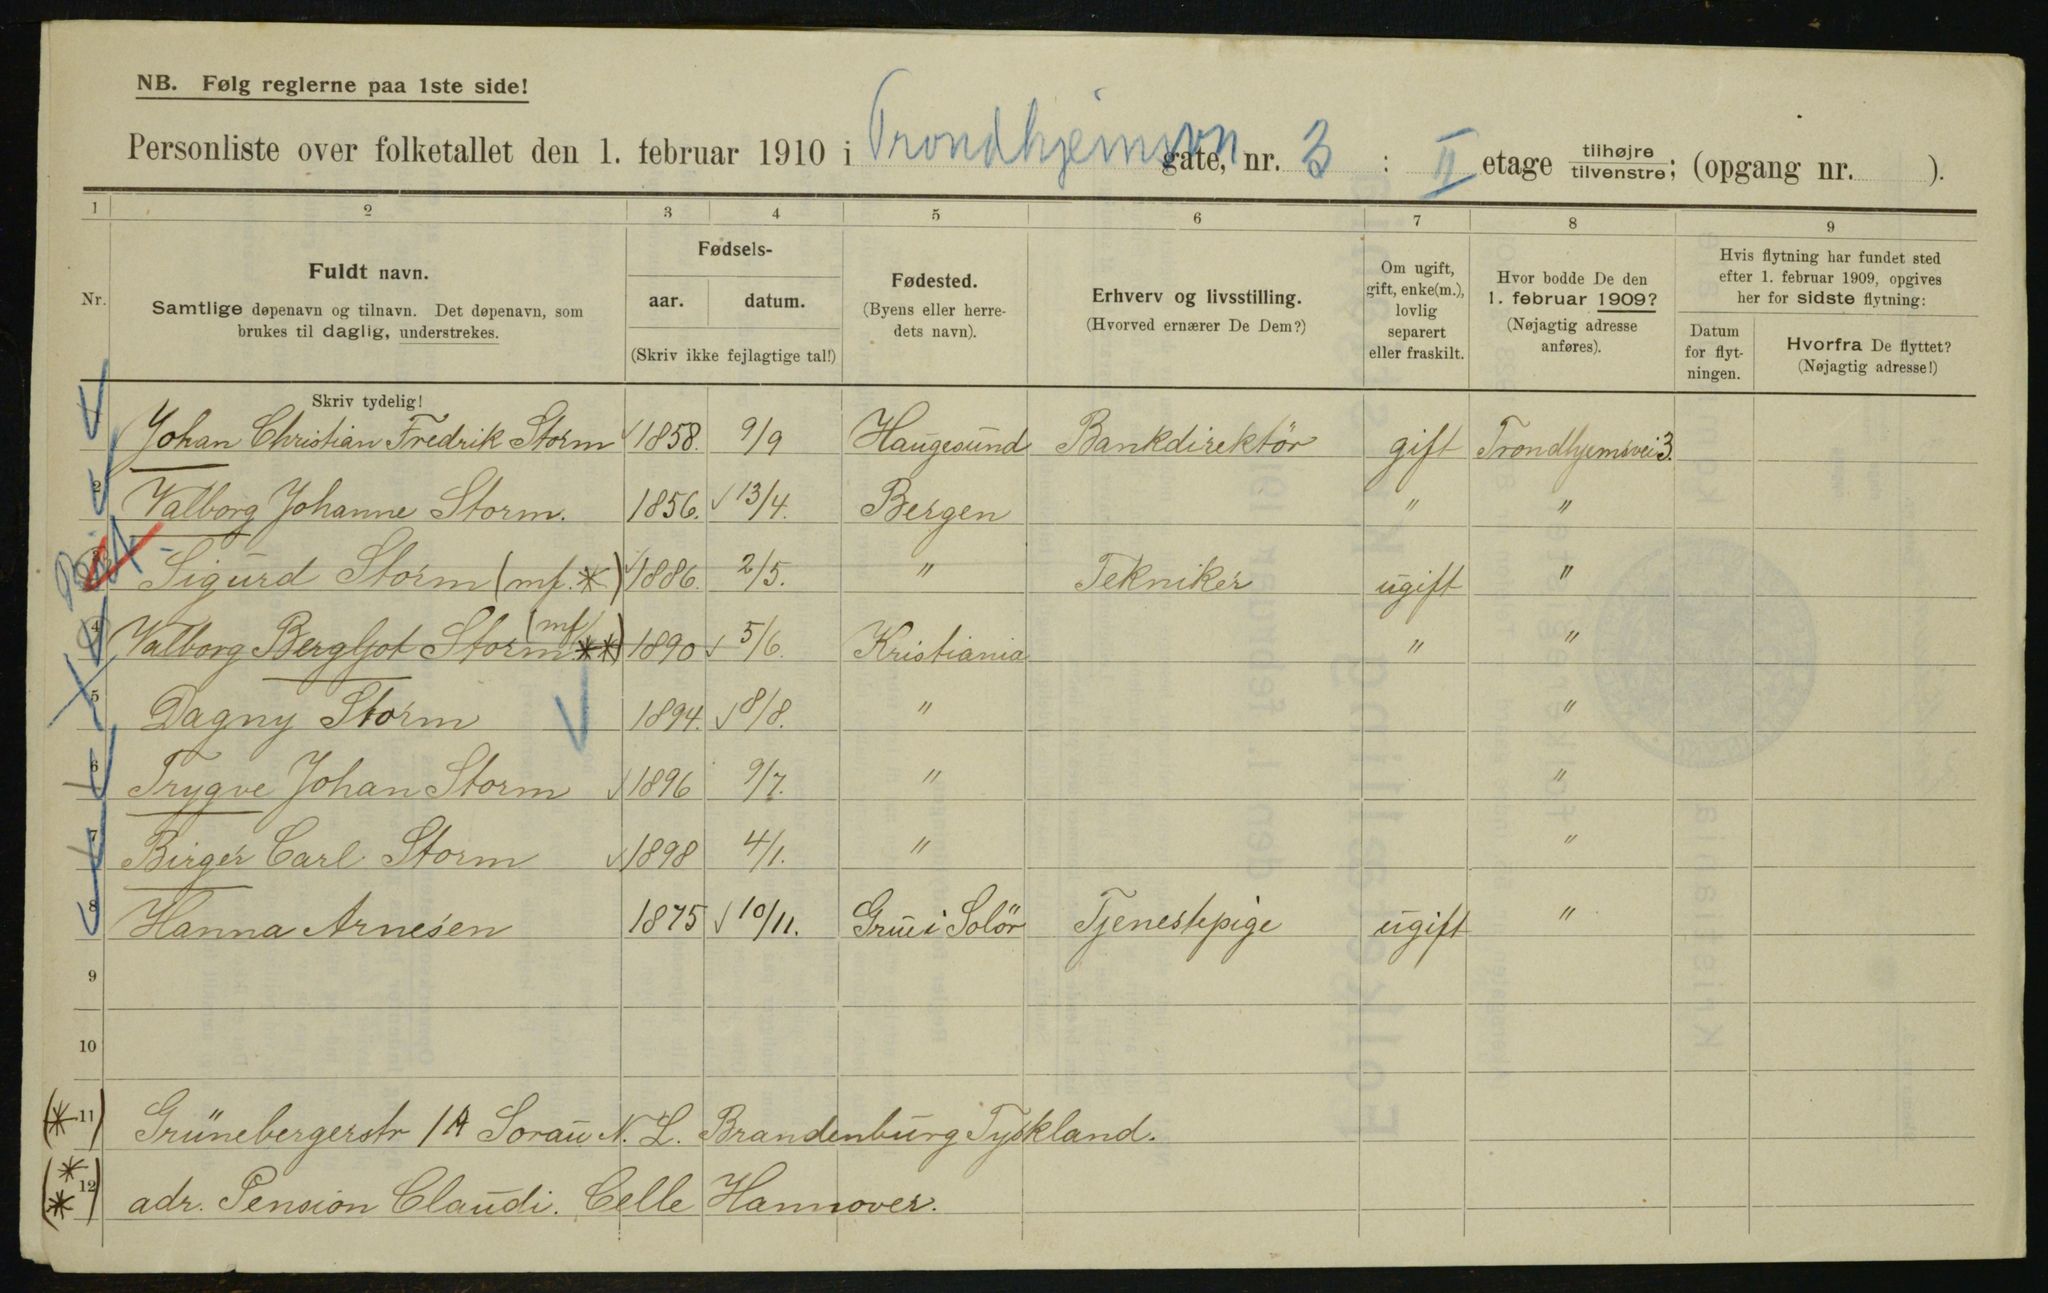 NB. Følg reglerne paa 1ste side!
Personliste over folketallet den 1. februar 1910 i Trondhjemsvn gate, nr. 3 : II etage tilhøjre/tilvenstre; (opgang nr. ).
1 2 3 4 5 6 7 8 9
Nr.
Fuldt navn.
Samtlige døpenavn og tilnavn. Det døpenavn, som
brukes til daglig, understrekes.
Fødsels-
aar. datum.
(Skriv ikke fejlagtige tal!)
Fødested.
(Byens eller herre-
dets navn).
Erhverv og livsstilling.
(Hvorved ernærer De Dem?)
Om ugift,
gift, enke(m.),
lovlig
separert
eller fraskilt.
Hvor bodde De den
1. februar 1909?
(Nøjagtig adresse
anføres).
Hvis flytning har fundet sted
efter 1. februar 1909, opgives
her for sidste flytning:
Datum
for flyt-
ningen.
Hvorfra De flyttet?
(Nøjagtig adresse!)
Skriv tydelig!
Johan Christian Fredrik Storm 1858. 9/9 Haugesund Bankdirektör gift Trondhjemsvei 3.
2 Valborg Johanne Storm. 1856. 13/4. Bergen " "
3 Sigurd Storm (mf. *) 1886. 2/5. " Tekniker ugift "
4 Valborg Bergljot Storm (mf **) 1890 5/6. Kristiania " "
5 Dagny Storm 1894. 8/8. " "
6 Trygve Johan Storm 1896 9/7. " "
7 Birger Carl Storm 1898 4/1. " "
8 Hanna Arnesen 1875 10/11. Grue i Solör Tjenestepige ugift "
9
10
(* 11) Grünebergerstr 1A Sorau N. L. Brandenburg Tyskland.
(** 12) adr. Pension Claudi. Celle Hannover.